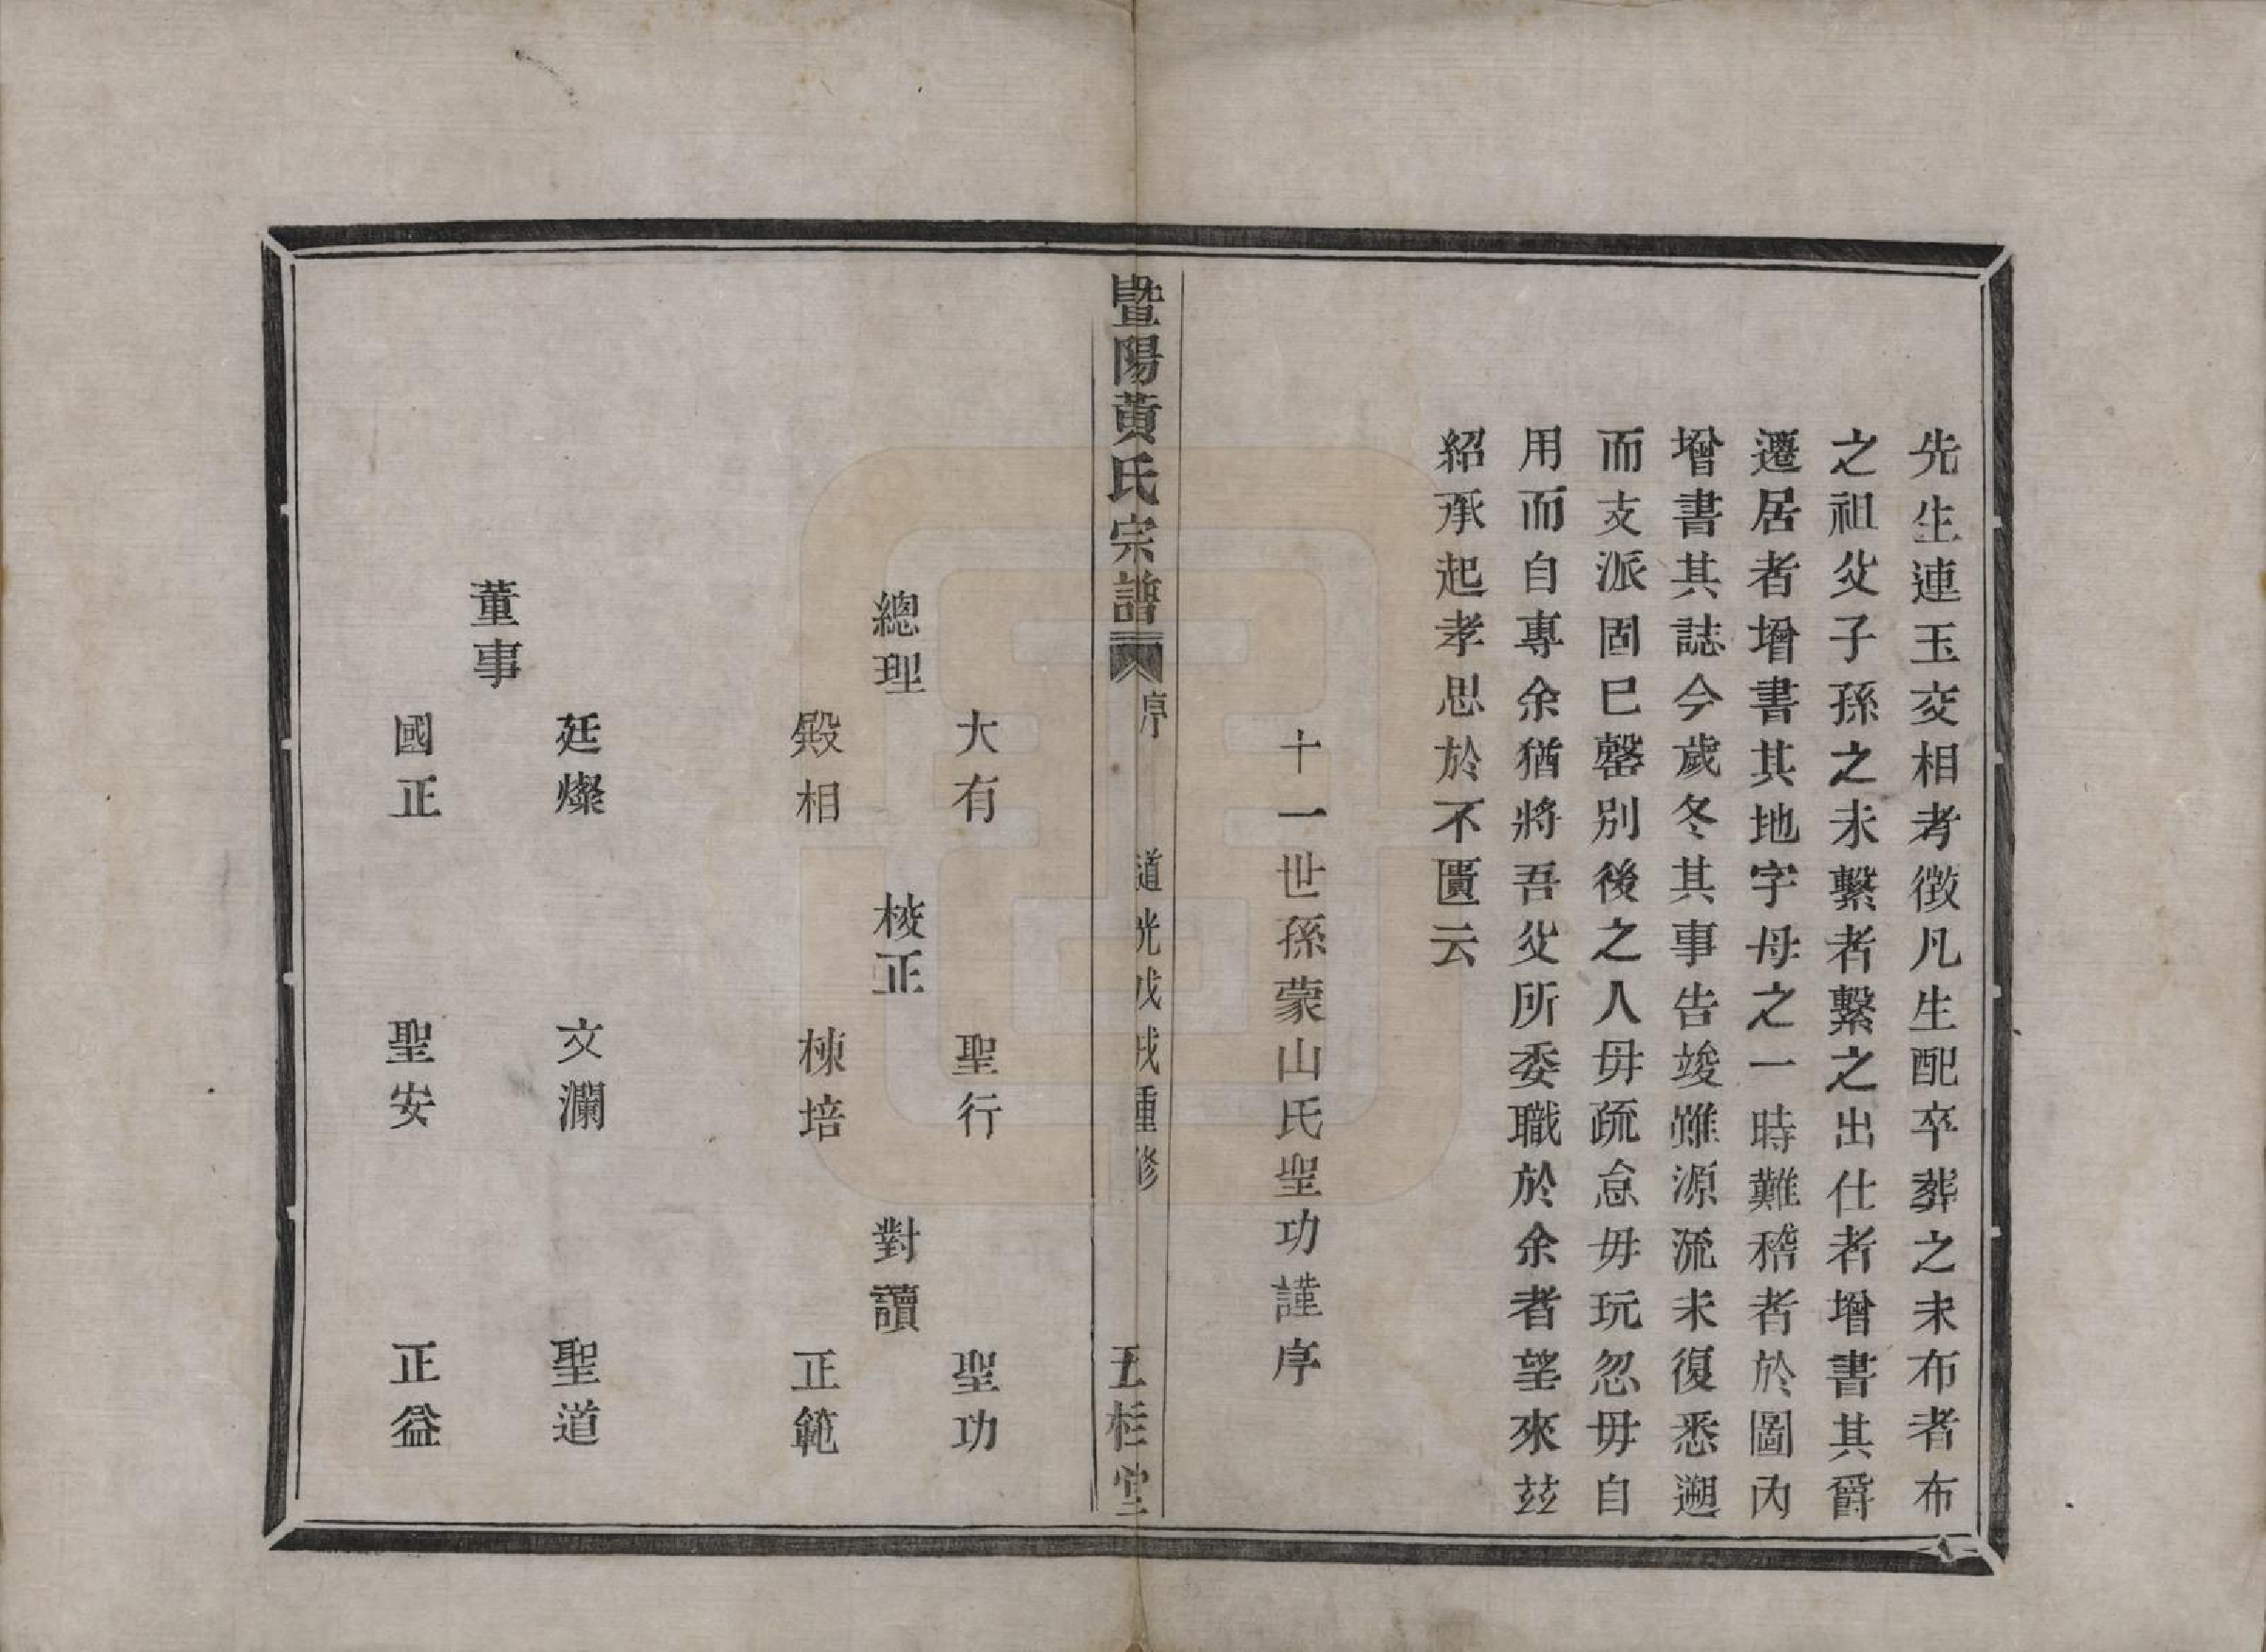 先生連玉交相考徵凡生配卒葬之未布者布
之祖父子孫之未繫者繫之出仕者增書其爵
遷居者增書其地字母之一時難稽者於圖內
增書其誌今歲冬其事告竣雖源流未復悉遡
而支派固已罄別後之人毋疏怠毋玩忽毋自
用而自專余猶將吾父所委職於余者望來玆
紹承起孝思於不匱云
十一世孫蒙山氏聖功謹序
暨陽黃氏宗譜 序 道光戊戌重修 五桂堂
大有 聖行 聖功
總理 棱正 對讀
殿相 棟培 正範
廷燦 文瀾 聖道
董事
國正 聖安 正益